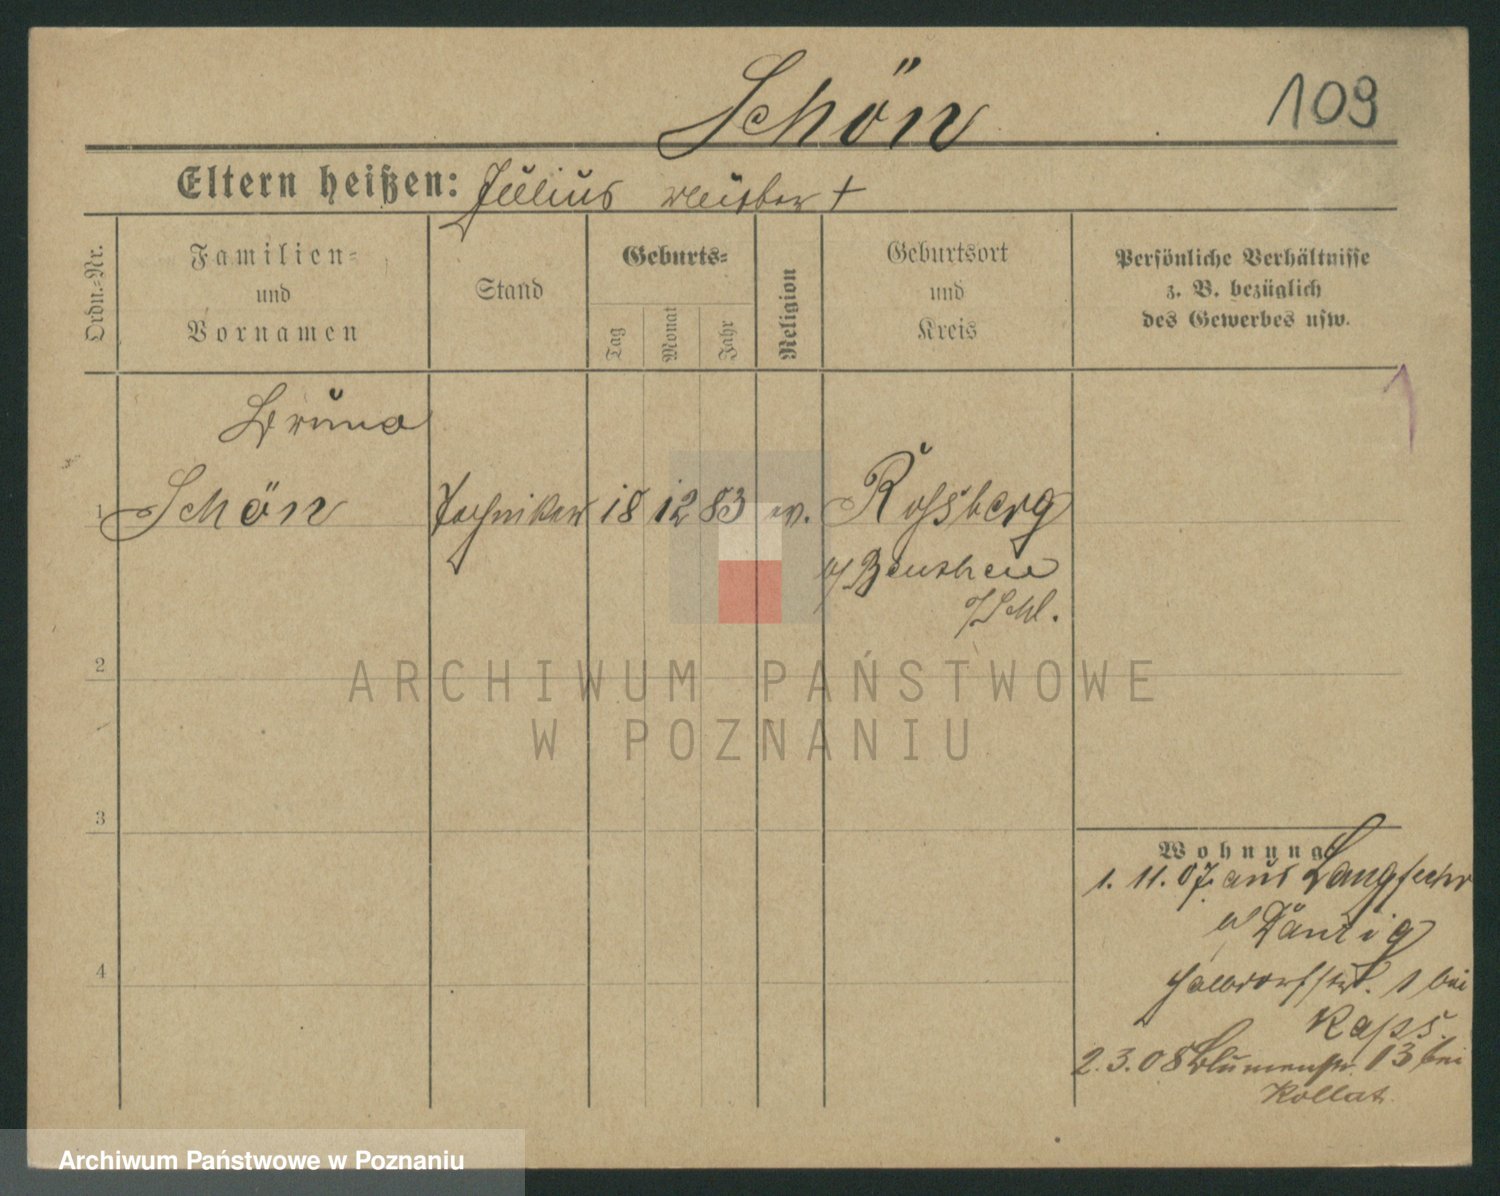 Schön
109
Eltern heißen: Julius Mutter †
Ordn.-Nr.
Familien-
und
Vornamen
Stand
Geburts-
Tag
Monat
Jahr
Religion
Geburtsort
und
Kreis
Persönliche Verhältnisse
z. B. bezüglich
des Gewerbes usw.
Bruno
1 Schön Techniker 18 12 83 ev. Roßberg
b/ Beuthen
o/Schl.
2
3
4
Wohnung
1. 11. 07. aus Langfuhr
b/ Danzig
Halbdorfstr. 1 bei
2. 3. 08 Blumenstr. 13 bei
ARCHIWUM PAŃSTWOWE
W POZNANIU
Archiwum Państwowe w Poznaniu